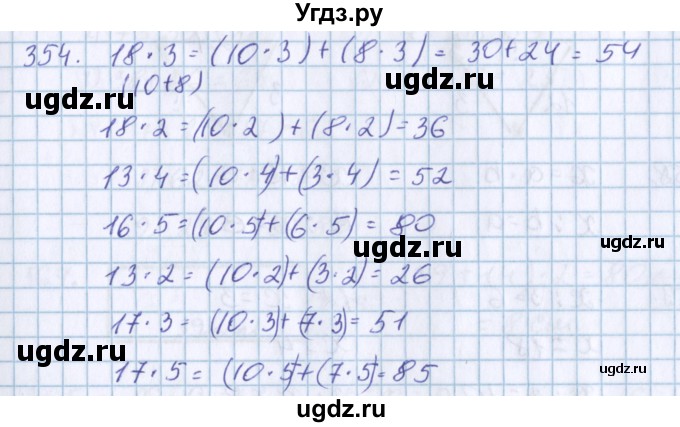 Угдз.ру
354. 18 · 3 = (10 · 3) + (8 · 3) = 30 + 24 = 54
(10+8)
ugdz.ru
ugdz.ru
18 · 2 = (10 · 2) + (8 · 2) = 36
13 · 4 = (10 · 4) + (3 · 4) = 52
16 · 5 = (10 · 5) + (6 · 5) = 80
ugdz.ru
13 · 2 = (10 · 2) + (3 · 2) = 26
17 · 3 = (10 · 3) + (7 · 3) = 51
ugdz.ru
ugdz.ru
17 · 5 = (10 · 5) + (7 · 5) = 85
ugdz.ru